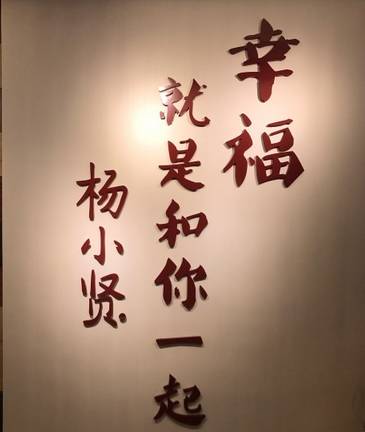 幸福
就是和你一起
杨小贤